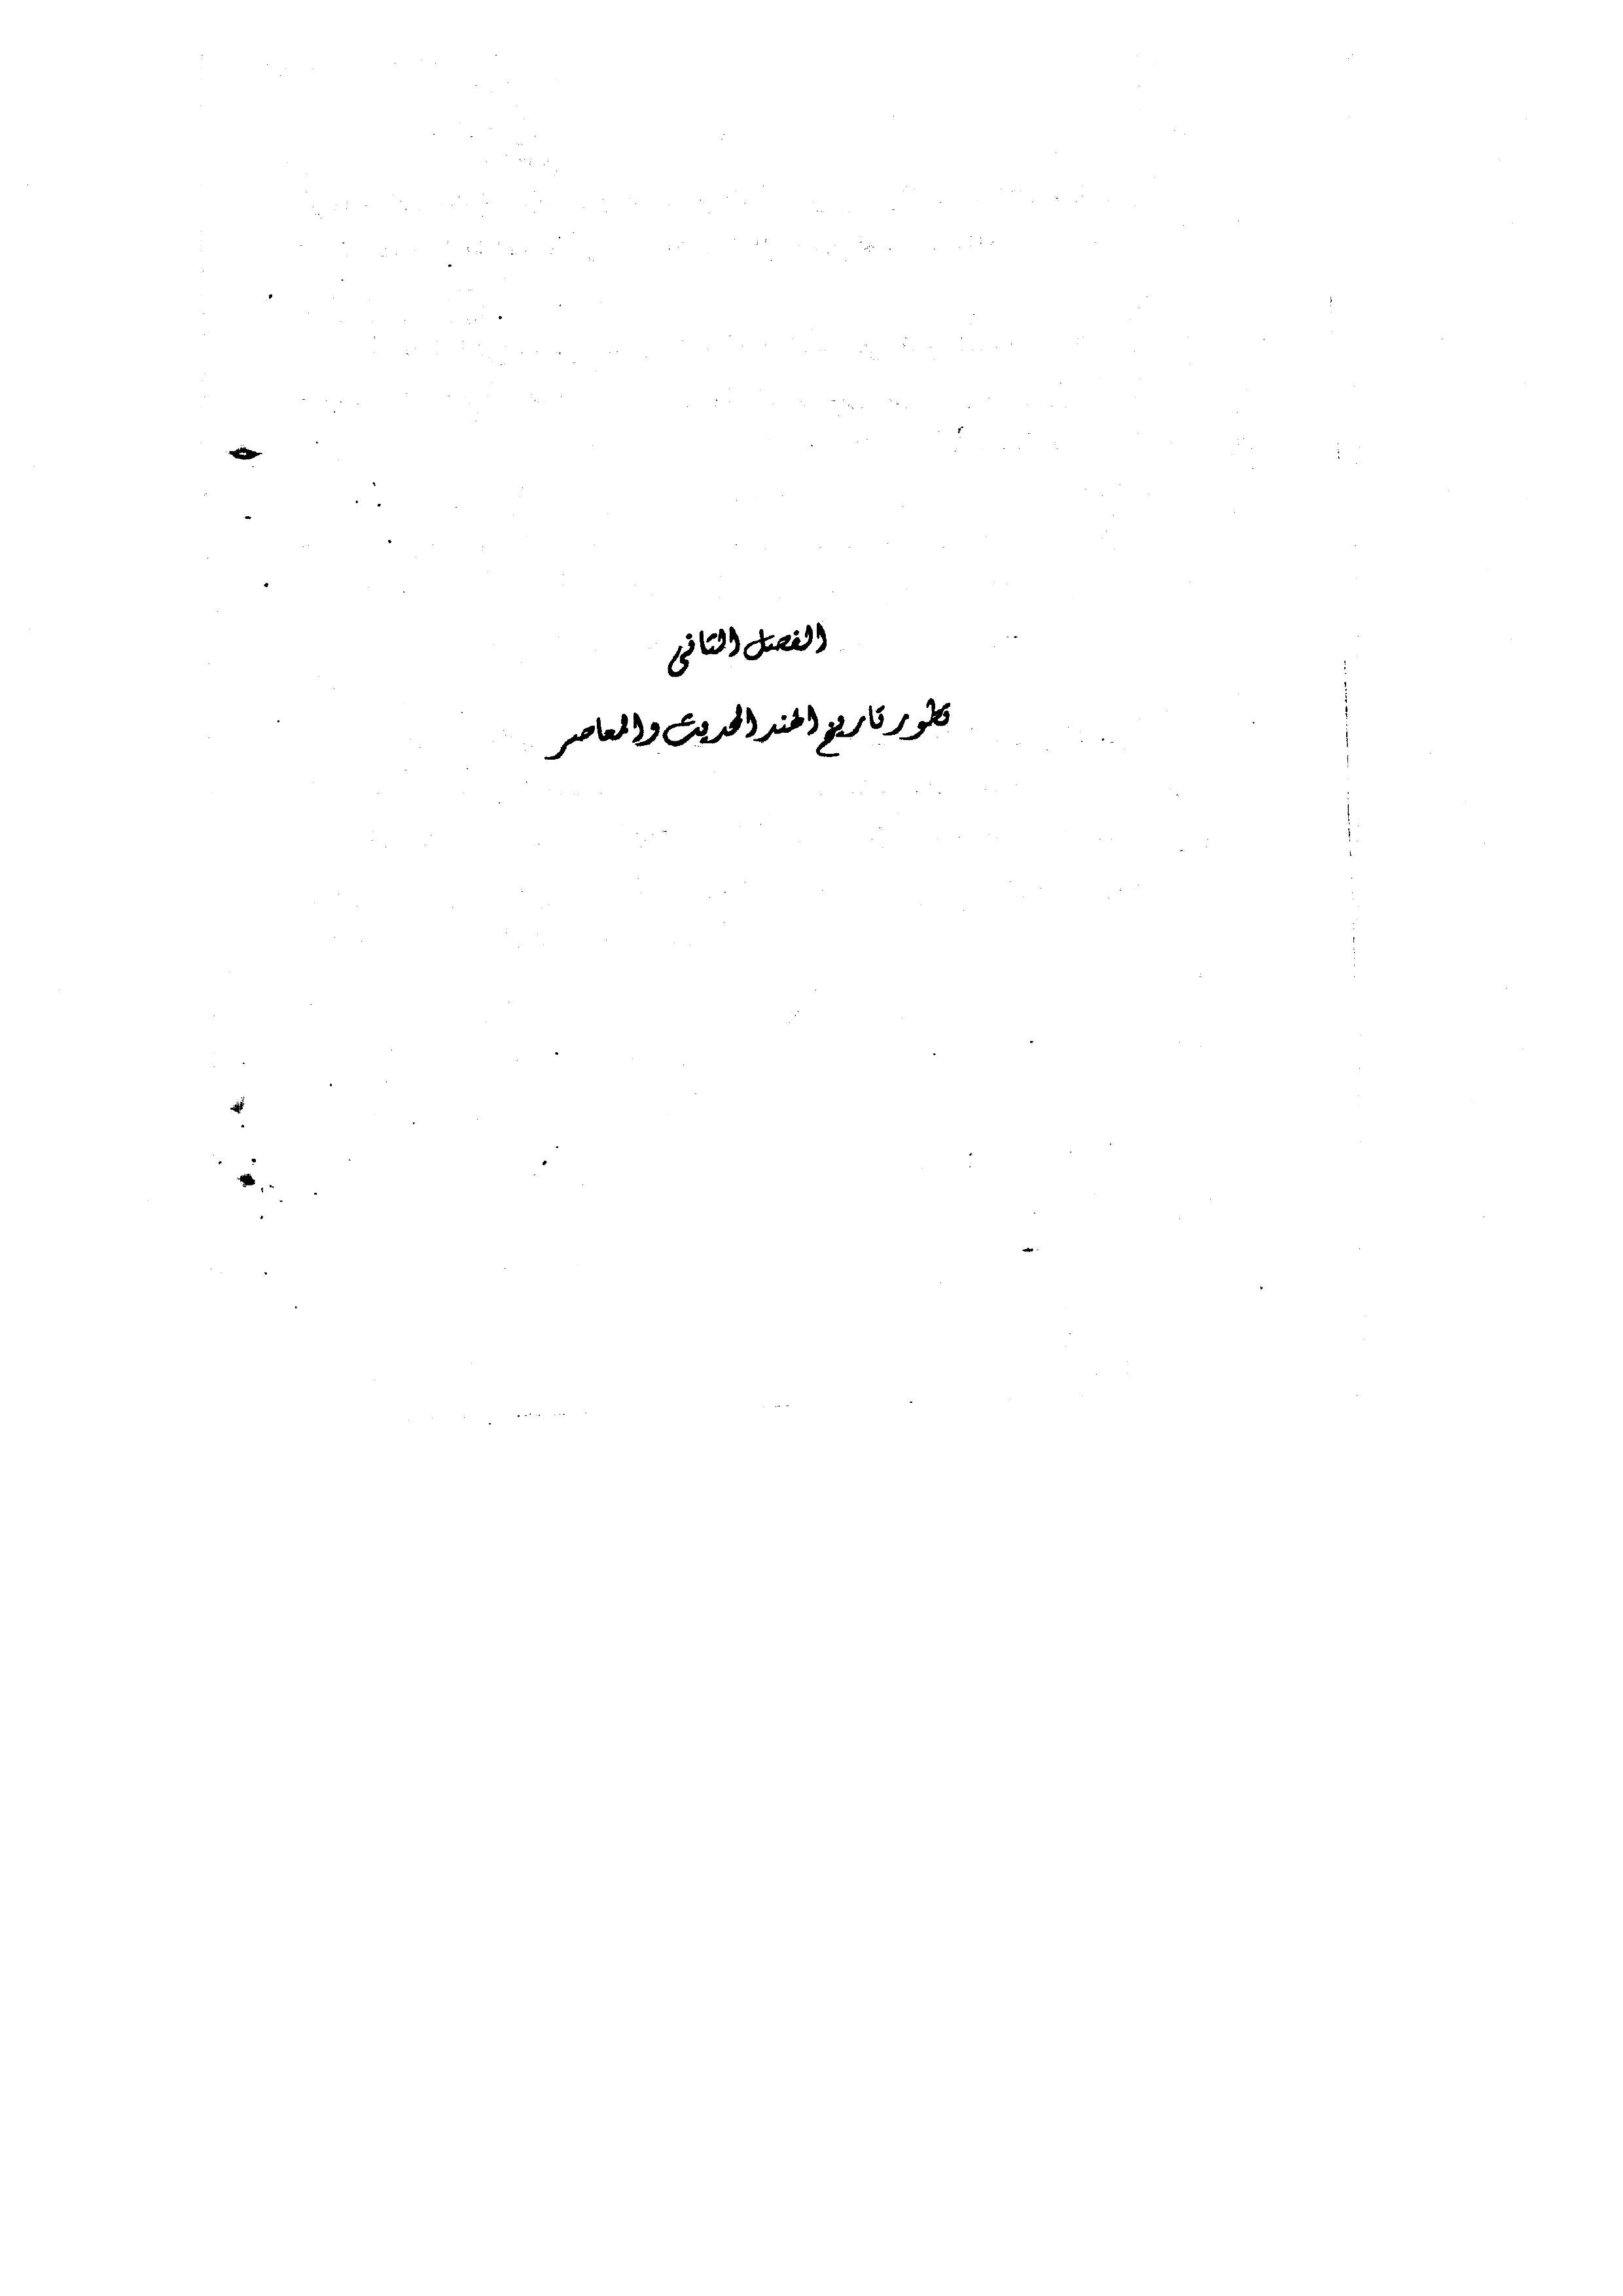 الفصل الثانى
تطور تاريخ الهند الحديث والمعاصر